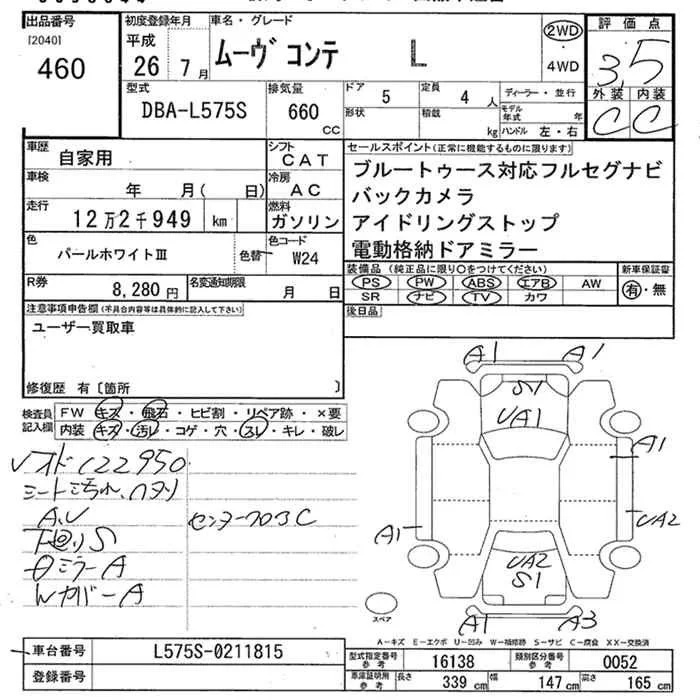 出品番号
[2040]
460
初度登録年月
平成
26 年 7 月
車名・グレード
ムーヴ コンテ L
2WD
・
4WD
評価点
3.5
外装 内装
C C
型式
DBA-L575S
排気量
660 CC
ドア 5
定員 4 人
形状
積載 kg
ディーラー・並行
モデル年式 年
ハンドル 左・右
車歴
自家用
シフト
CAT
車検
年 月( 日)
冷房
AC
走行
12万2千949 km
燃料
ガソリン
色
パールホワイトⅢ
色替
色コード
W24
R券
8,280 円
名変通知期限
月 日
セールスポイント(正常に機能するものに限ります)
ブルートゥース対応フルセグナビ
バックカメラ
アイドリングストップ
電動格納ドアミラー
装備品(純正品に限り○をつけてください)
PS PW ABS エアB AW
SR ナビ TV カワ
新車保証書
有・無
後日品
注意事項申告欄(不具合内容等は具体的に記入して下さい)
ユーザー買取車
修復歴 有〔箇所 〕
検査員記入欄
FW キズ・飛石・ヒビ割・リペア跡・×要
内装 キズ・汚レ・コゲ・穴・スレ・キレ・破レ
122950
シート汚れ、
A,U
下廻りS
ミラーA
WカバーA
センターフロアC
A1 A1
S1
UA1
A1
UA2
A1
UA2
S1
A1 A3
スペア
A－キズ E－エクボ U－凹み W－補修跡 S－サビ C－腐食 XX－交換済
車台番号
L575S-0211815
登録番号
型式指定番号
参考
16138
類別区分番号
参考
0052
車庫証明用
参考
長さ 339 cm
幅 147 cm
高さ 165 cm